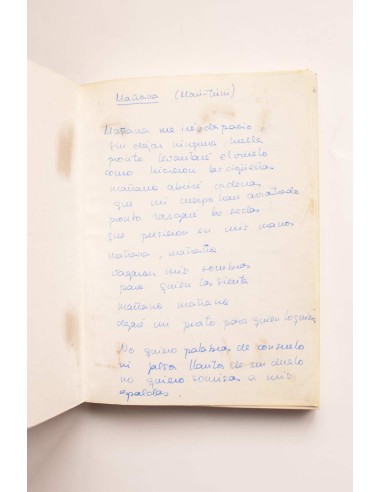 Mañana (Mari-Trini)
Mañana me iré despacio,
sin dejar ninguna huella
pronto levantaré el vuelo
como hicieron las cigüeñas
mañana abriré cadenas
que mi cuerpo han
pronto rasgaré las
que pusieron en mis manos
mañana, mañana
vagaran mis sombras
para quien las sienta
mañana mañana
dejaré mi plato para quien lo quiera
No quiero palabras de consuelo
ni falsos llantos de un duelo
no quiero sonrisa a mis
espaldas.